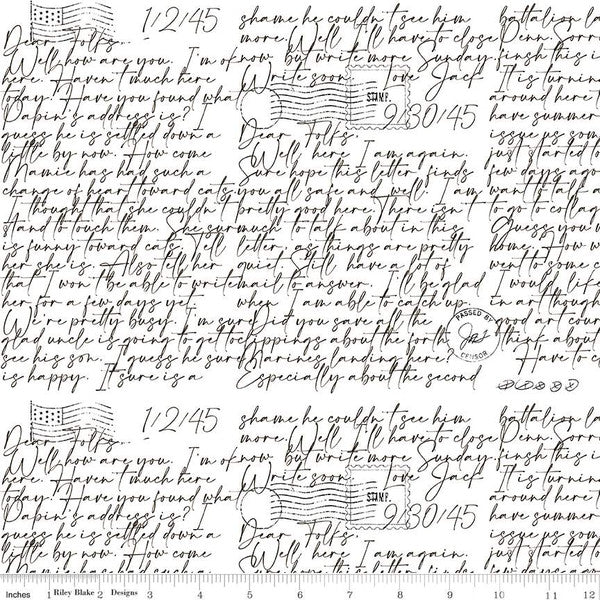 1/2/45
Dear Folks.
Well, how are you. I'm ok
here. Haven't much here
today. Have you found what
Papin's address is? I
guess he is settled down a
little by now. How come
Mamie has had such a
change of heart toward cats.
I thought that she couldn't
stand to touch them. She sure
is funny toward cats. Tell
her she is. Also tell her
that I won't be able to write
her for a few days yet.
We're pretty busy. I'm sure
glad uncle is going to get to
see his son. I guess he sure
is happy. It sure is a
shame he couldn't see him
more. Well I'll have to close
now but write more Sunday.
Write soon. love Jack
STAMP
9/30/45
Dear Folks.
Well, here I am again.
Sure hope this letter finds
you all safe and well. I am
pretty good here. There isn't
much to talk about in this
letter, as things are pretty
quiet. Still have a lot of
mail to answer. I'll be glad
when I am able to catch up.
Did you save all the
clippings about the forth
Marines landing here?
Especially about the second
battallion la
Penn. Sorro
finsh this i
It is turnin
around here t
have summer
issue us som
just started to
few days ago
want to talk a
to go to collag
Guess you w
home. How w
went to some c
I would life
in art though
good art cour
think about
Have to c
PASSED BY
CENSOR
1/2/45
Dear Folks.
Well, how are you. I'm ok
here. Haven't much here
today. Have you found what
Papin's address is? I
guess he is settled down a
little by now. How come
Mamie has had such a
shame he couldn't see him
more. Well I'll have to close
now but write more Sunday.
Write soon. love Jack
STAMP
9/30/45
Dear Folks.
Well, here I am again.
Sure hope this letter finds
battallion la
Penn. Sorro
finsh this i
It is turnin
around here t
have summer
issue us som
just started to
few days ago
Inches 1 Riley Blake 2 Designs 3 4 5 6 7 8 9 10 11 12